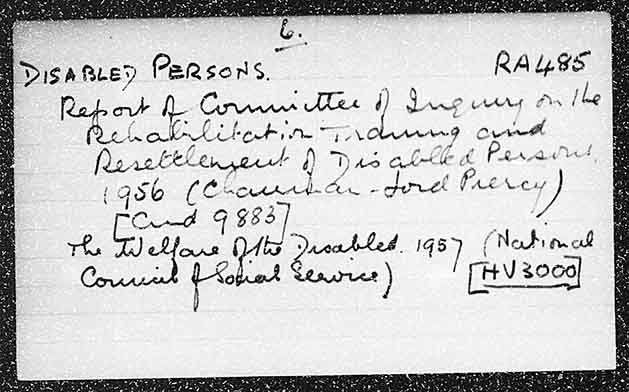 6.
DISABLED PERSONS. RA485
Report of Committee of Inquiry on the
Rehabilitation Training and
Resettlement of Disabled Persons.
1956 (Chairman - Lord Piercy)
[Cmd 9883]
The Welfare of the Disabled. 1957 (National
Council of Social Service) [HV3000]